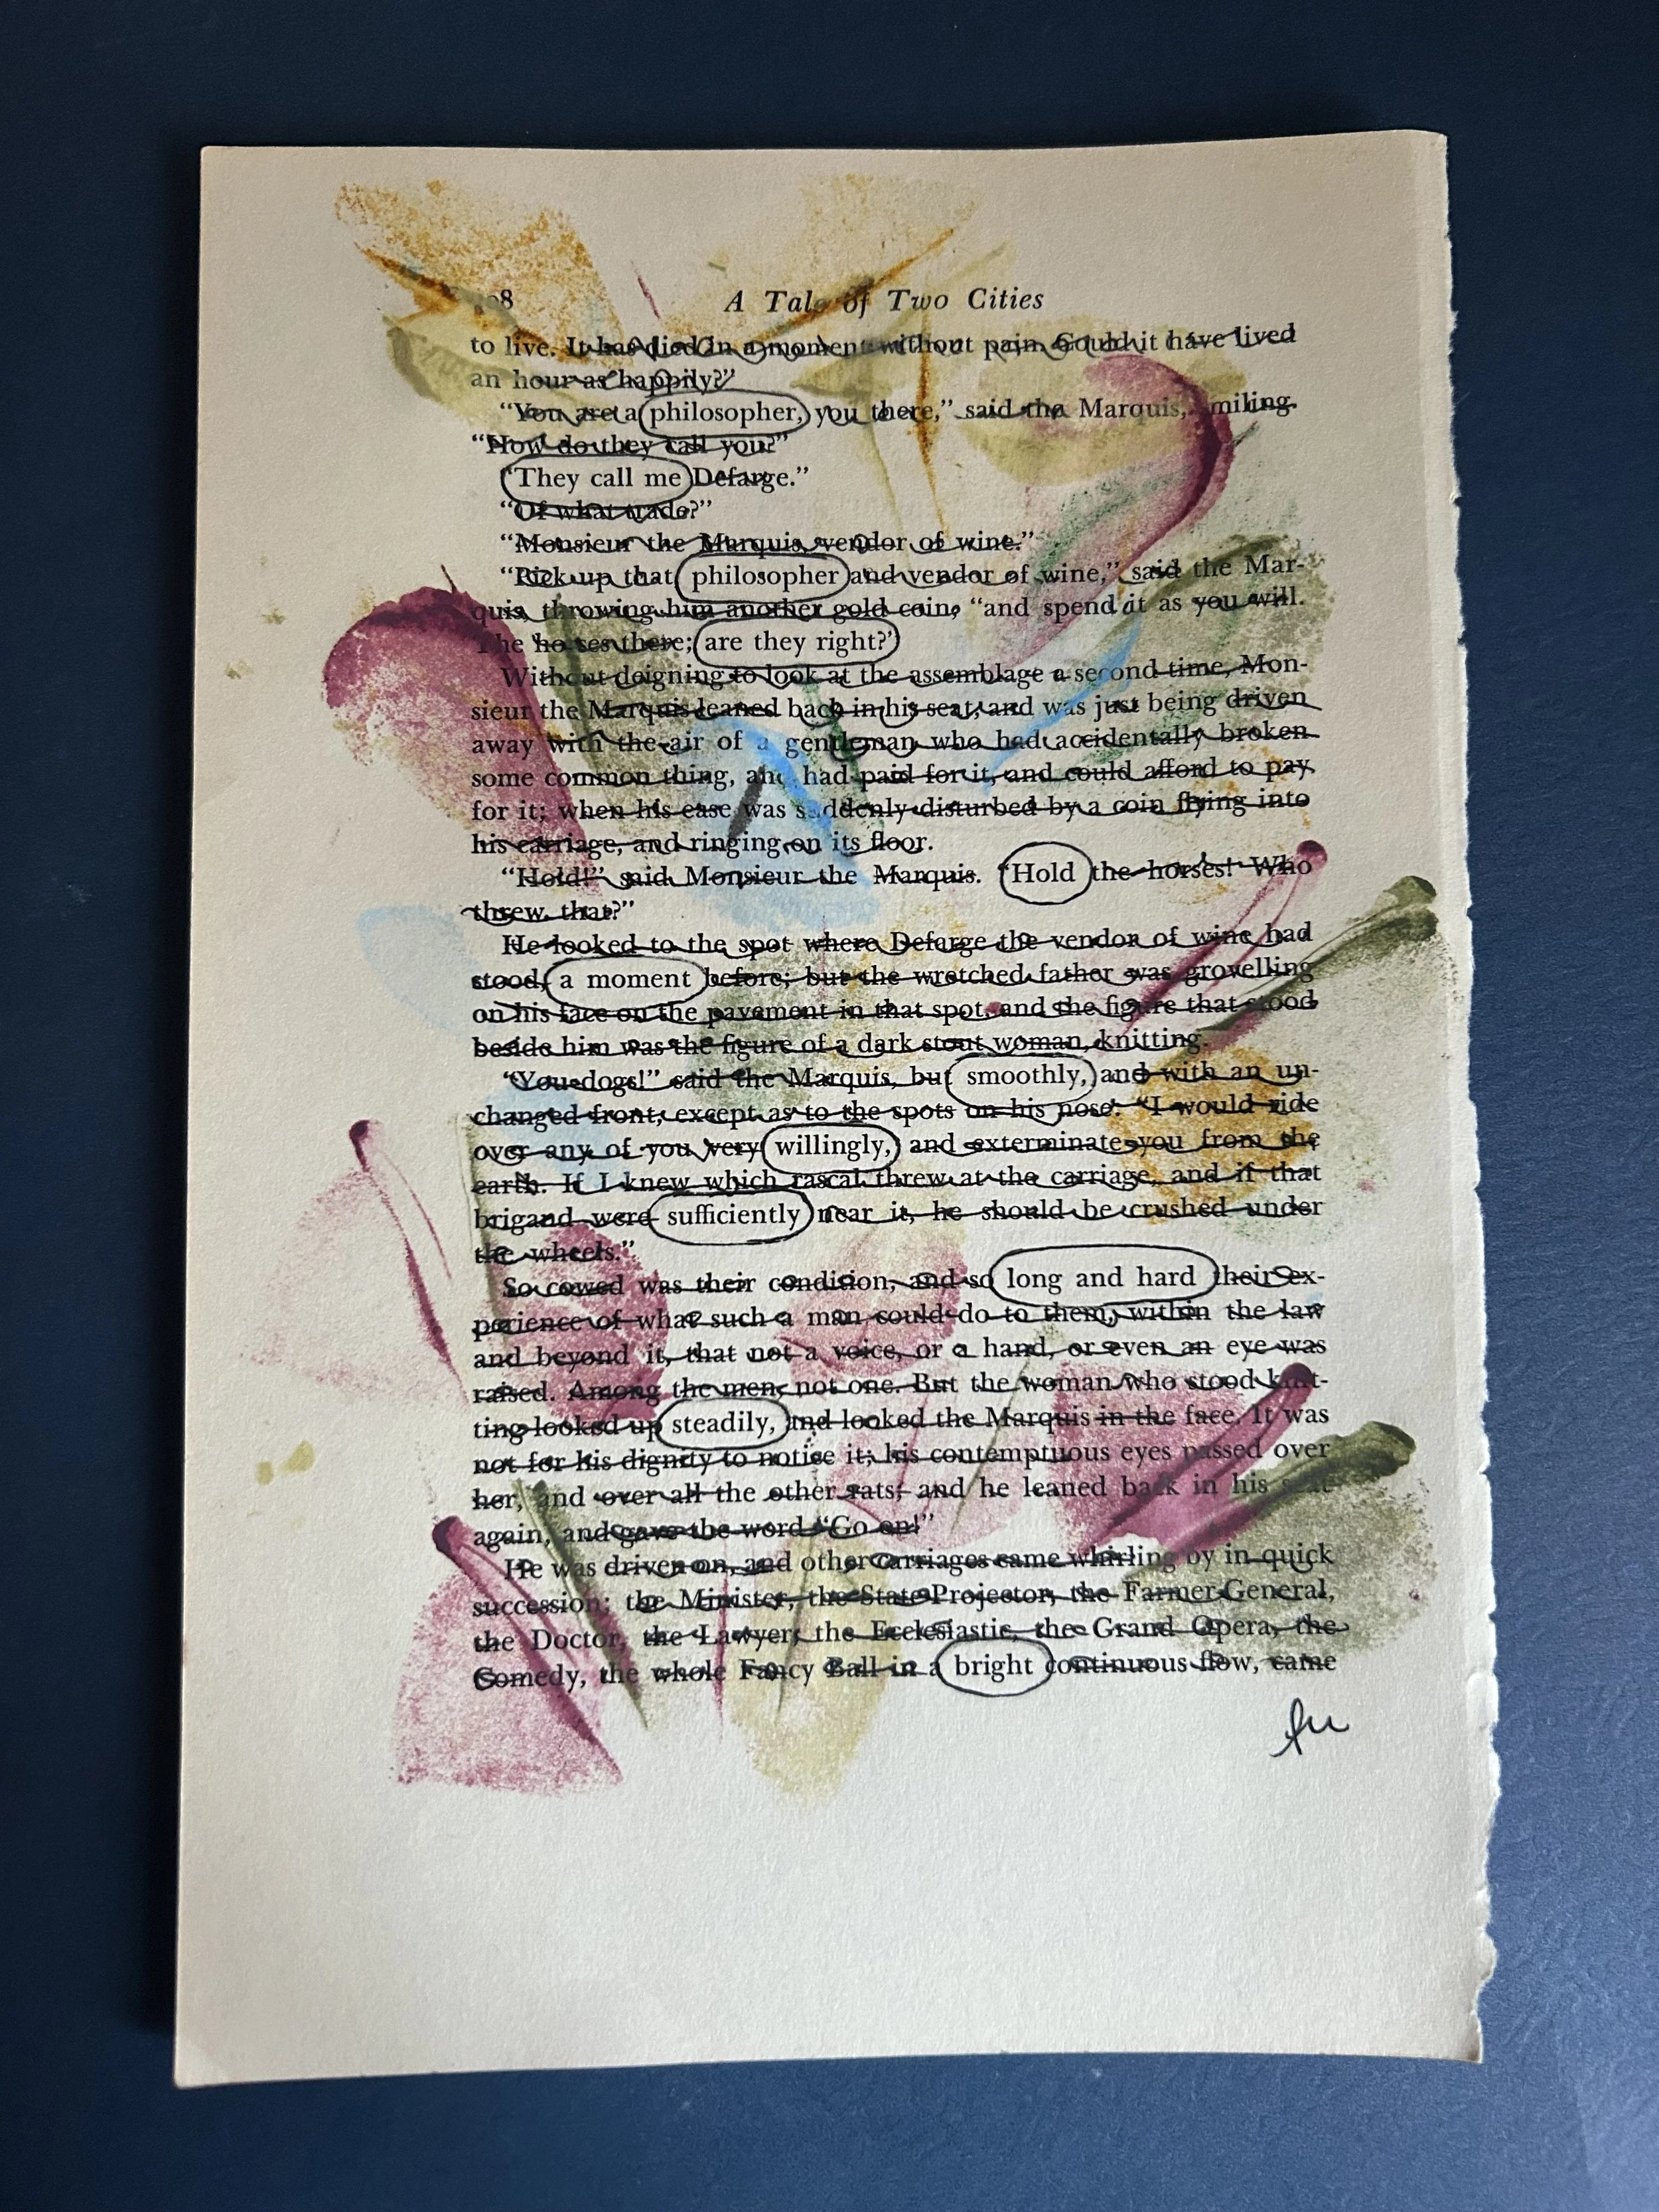 08 A Tale of Two Cities
to live. It has died in a moment without pain. Could it have lived
an hour as happily?”
“You are a philosopher, you there,” said the Marquis, smiling.
“How do they call you?”
“They call me Defarge.”
“Of what trade?”
“Monsieur the Marquis, vendor of wine.”
“Pick up that, philosopher and vendor of wine,” said the Mar-
quis, throwing him another gold coin, “and spend it as you will.
The horses there; are they right?”
Without deigning to look at the assemblage a second time, Mon-
sieur the Marquis leaned back in his seat, and was just being driven
away with the air of a gentleman who had accidentally broken
some common thing, and had paid for it, and could afford to pay
for it; when his ease was suddenly disturbed by a coin flying into
his carriage, and ringing on its floor.
“Hold!” said Monsieur the Marquis. “Hold the horses! Who
threw that?”
He looked to the spot where Defarge the vendor of wine had
stood, a moment before; but the wretched father was grovelling
on his face on the pavement in that spot, and the figure that stood
beside him was the figure of a dark stout woman, knitting.
“You dogs!” said the Marquis, but smoothly, and with an un-
changed front, except as to the spots on his nose: “I would ride
over any of you very willingly, and exterminate you from the
earth. If I knew which rascal threw at the carriage, and if that
brigand were sufficiently near it, he should be crushed under
the wheels.”
So cowed was their condition, and so long and hard their ex-
perience of what such a man could do to them, within the law
and beyond it, that not a voice, or a hand, or even an eye was
raised. Among the men, not one. But the woman who stood knit-
ting looked up steadily, and looked the Marquis in the face. It was
not for his dignity to notice it; his contemptuous eyes passed over
her, and over all the other rats; and he leaned back in his seat
again, and gave the word “Go on!”
He was driven on, and other carriages came whirling by in quick
succession; the Minister, the State-Projector, the Farmer-General,
the Doctor, the Lawyer, the Ecclesiastic, the Grand Opera, the
Comedy, the whole Fancy Ball in a bright continuous flow, came